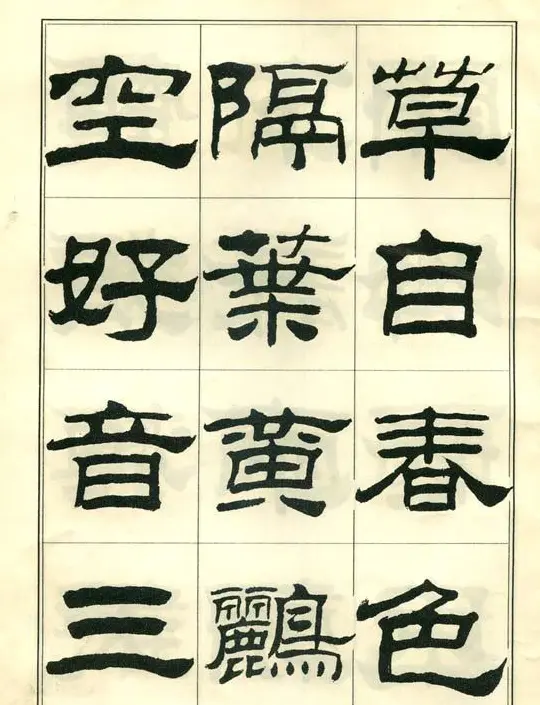 草自春色
隔葉黄鸝
空好音三